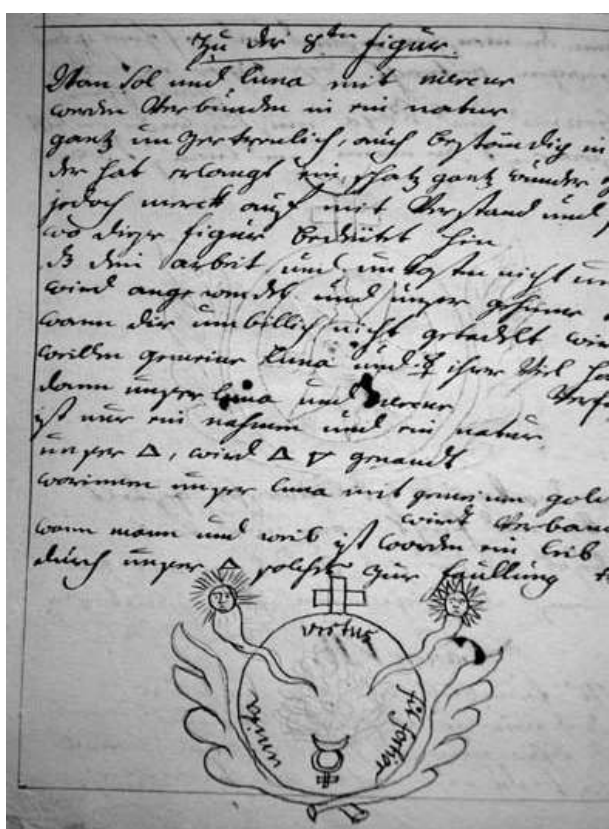 Zu der 8ten figur.
Wan Sol und Luna mit mercur
werden Verbunden in ein natur
gantz unzertrenlich, auch beständig in
der hat erlangt ein schatz gantz wunder
jedoch merck auff mit Verstand und
wo dieser figur bedeutet hin
dein arbeit und unkosten nicht
wird angewendet und unser geheime
wann dir umbillich nicht getadelt
weillen gemeine Luna und ☿ ihrer Viel
dann unser luna und mercur
ist nur ein nahmen und ein natur
unser △, wird △ ▽ genandt
worinnen unser luna mit gemeinem gold
wird Verban
wann mann und weib ist worden ein leib
durch unser △ solches zur faullung
virtus
unita
fit fortior